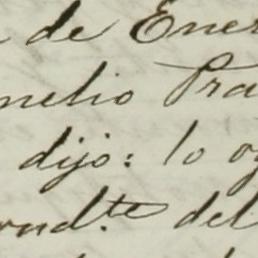 de Ener
nelio Pra
dijo: lo oy
ond.te del